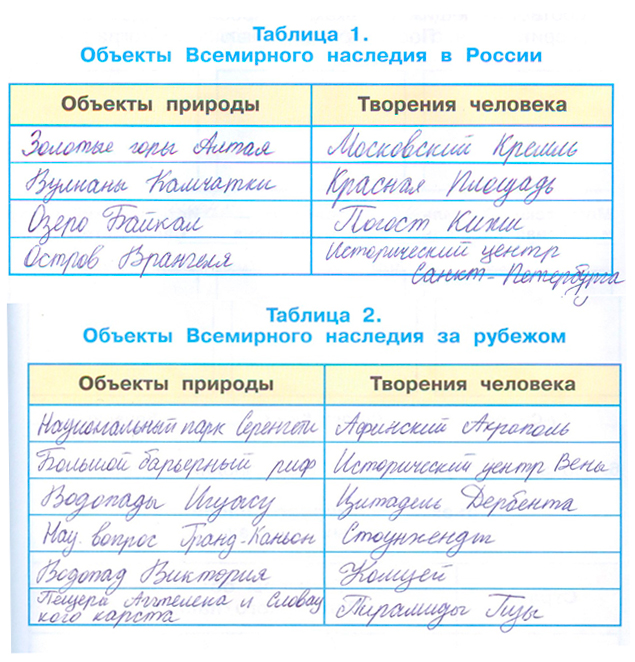 Таблица 1.
Объекты Всемирного наследия в России
Объекты природы Творения человека
Золотые горы Алтая Московский Кремль
Вулканы Камчатки Красная Площадь
Озеро Байкал Погост Кижи
Остров Врангеля Исторический центр
Санкт-Петербурга
Таблица 2.
Объекты Всемирного наследия за рубежом
Объекты природы Творения человека
Национальный парк Серенгети Афинский Акрополь
Большой барьерный риф Исторический центр Вены
Водопады Игуасу Цитадель Дербента
Нац. вопрос Гранд-Каньон Стоунхендж
Водопад Виктория
Пещера Аггтелека и Словац Пирамиды Гизы
кого карста